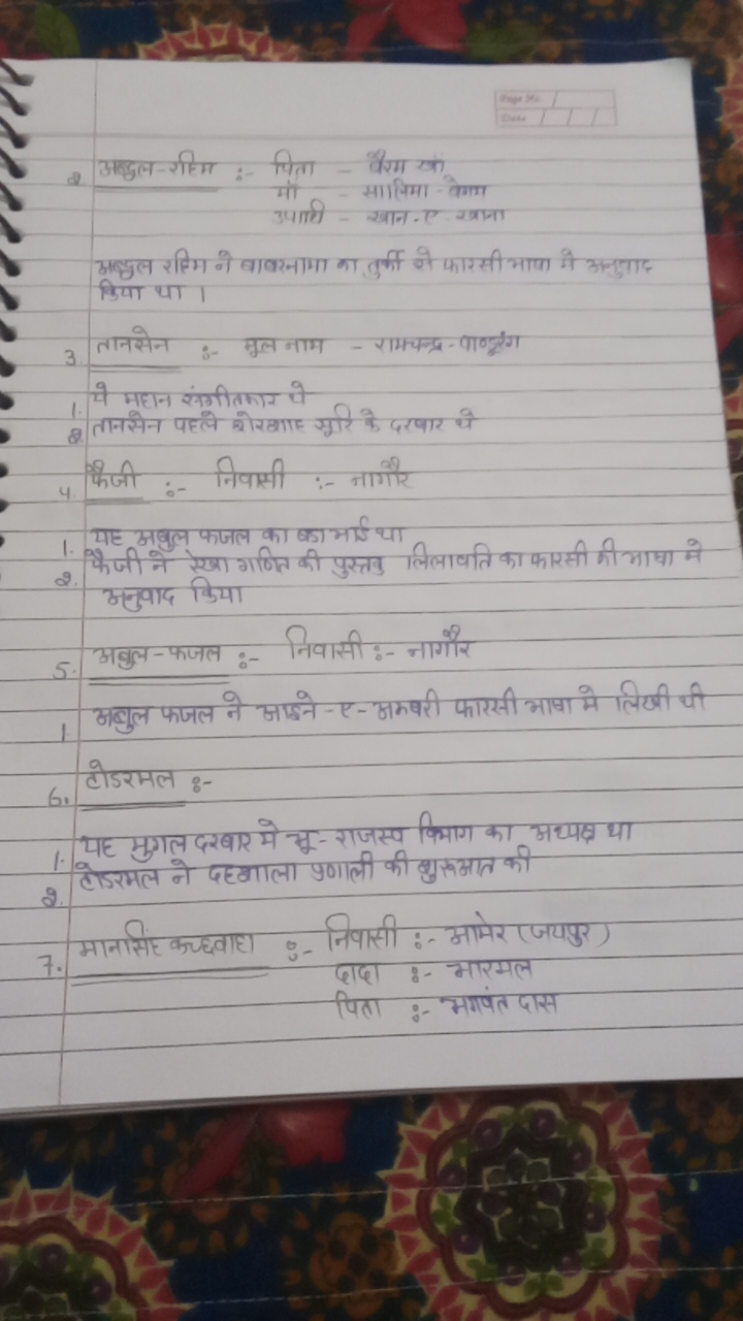 Page No.
Date
2 अब्दुल-रहिम :- पिता - बैरम खां
माँ - सालिमा-बेगम
उपाधि - खान-ए-खाना
अब्दुल रहिम ने बाबरनामा का तुर्की से फारसी भाषा मे अनुवाद
किया था ।
3. तानसेन :- मूल नाम - रामचन्द्र-पाण्डूरंग
1. ये महान संगीतकार थे
2. तानसेन पहले शेरशाह सूरि के दरबार थे
4. फैजी :- निवासी :- नागौर
1. यह अबुल फजल का बडा भाई था
2. फैजी ने रेखा गणित की पुस्तक लिलावति का फारसी की भाषा मे
अनुवाद किया
5. अबुल-फजल :- निवासी :- नागौर
1. अबुल फजल ने आइने-ए-अकबरी फारसी भाषा मे लिखी थी
6. टोडरमल :-
1. यह मुगल दरबार मे भू-राजस्व विभाग का अध्यक्ष था
2. टोडरमल ने दहशाला प्रणाली की शुरूआत की
7. मानसिंह कच्छवाहा :- निवासी :- आमेर (जयपुर)
दादा :- भारमल
पिता :- भगवंत दास